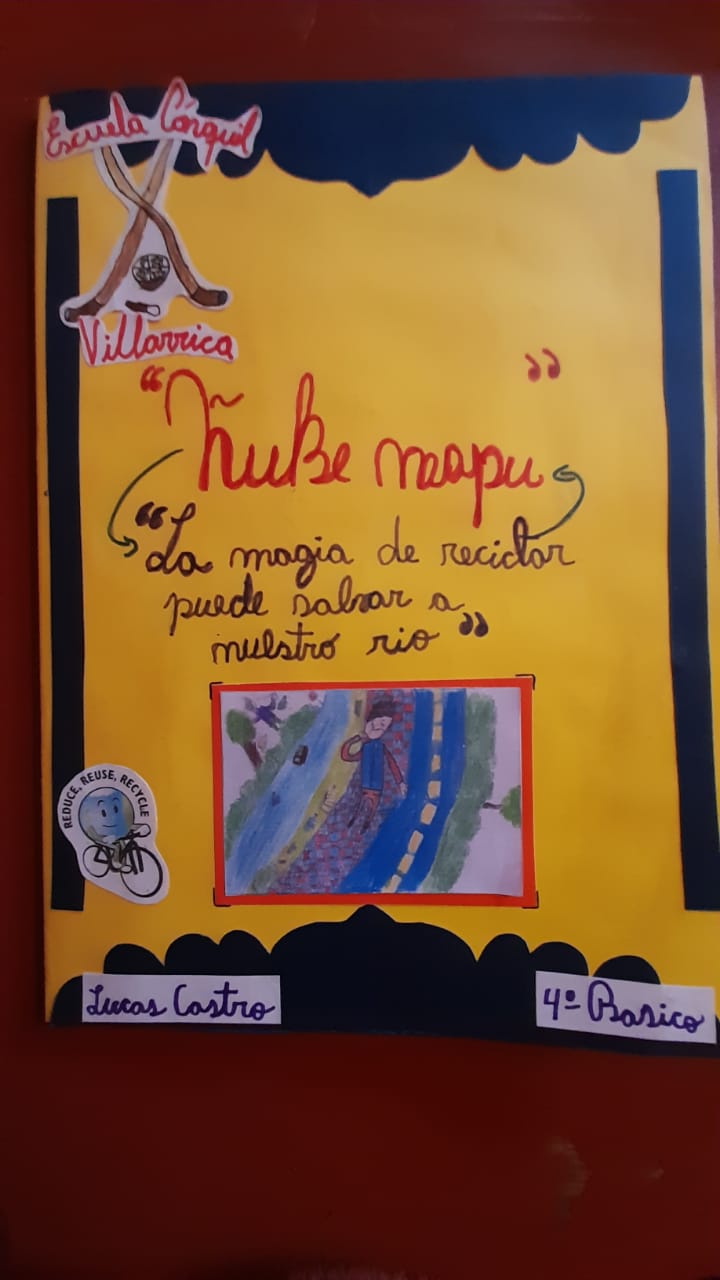 Escuela Conquil
Villarrica
“Ñuke mapu”
“La magia de reciclar
puede salvar a
nuestro rio”
REDUCE, REUSE, RECYCLE
Lucas Castro
4º Basico